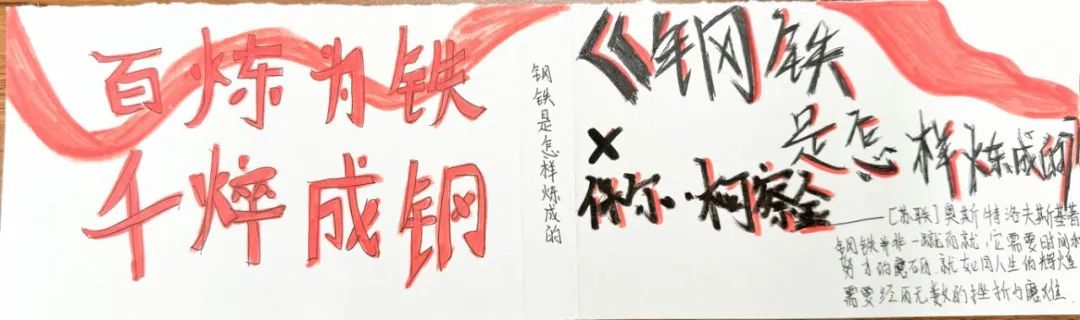 百炼为铁
千焠成钢
钢铁是怎样炼成的
《钢铁
是怎样炼成的》
×
保尔·柯察金
——[苏联]奥斯特洛夫斯基著
钢铁并非一蹴而就,它需要时间和
努力的磨砺.就如同人生的辉煌
需要经历无数的挫折与磨难.